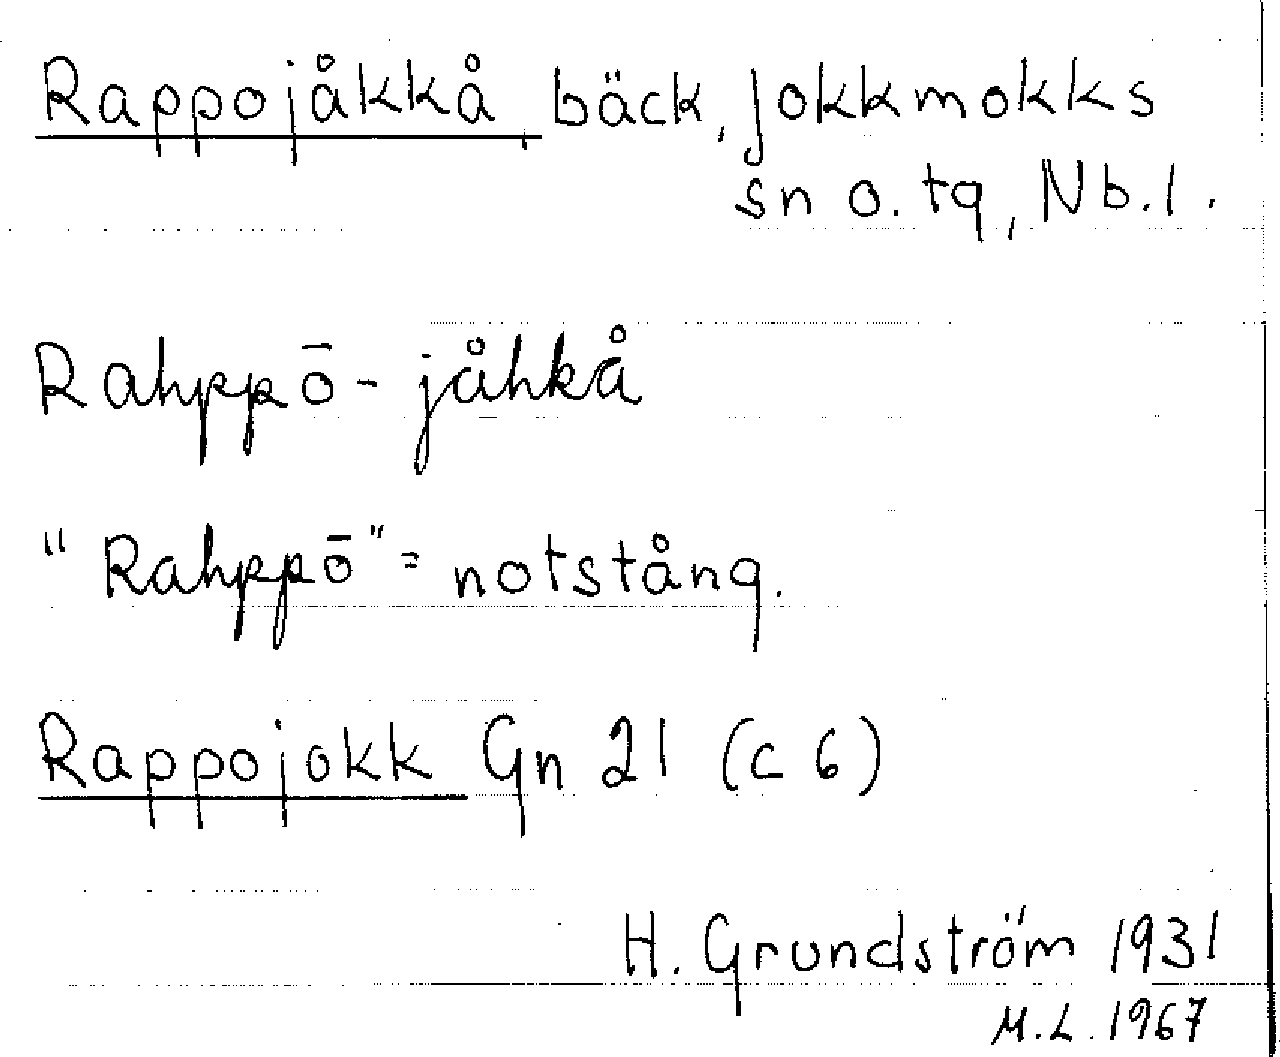 Rappojåkkå, bäck, Jokkmokks
sn o. tg, Nb.l.
Rahppō-jåhkå
"Rahppō" = notstång.
Rappojokk Gn 21 (c 6)
H. Grundström 1931
M.L. 1967